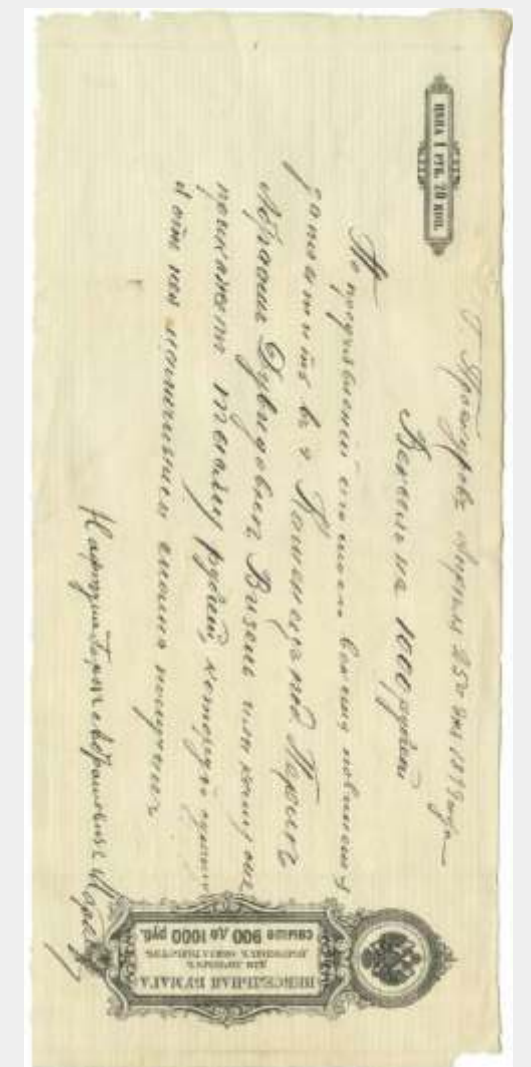 ЦѢНА 1 РУБ. 20 КОП.
Г. Проскуровъ Апрѣля 25го дня 1888 года
Вексель на 1000 рублей
По предъявленіи сего моего векселя повиненъ я
заплатить въ г.
или кому онъ
прикажетъ тысячу рублей, которую сумму
я отъ него наличными сполна получилъ
ВЕКСЕЛЬНАЯ БУМАГА
ДЛЯ ЛИЧНЫХЪ
ДОЛГОВЫХЪ ОБЯЗАТЕЛЬСТВЪ
СВЫШЕ 900 ДО 1000 РУБ.